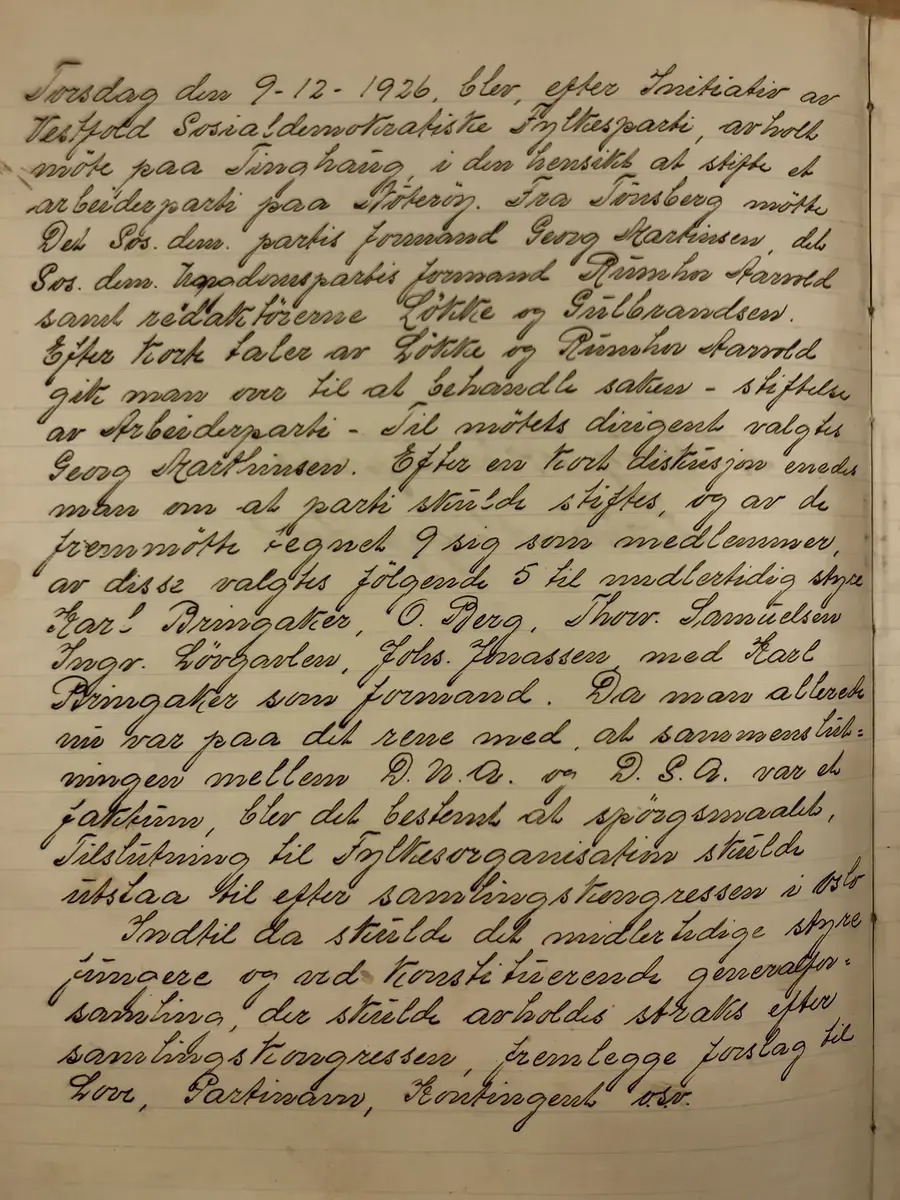 Torsdag den 9-12-1926, blev, efter Initiativ av
Vestfold Sosialdemokratiske Fylkesparti, avholt
möte paa Tinghaug, i den hensikt at stifte et
arbeiderparti paa Nöteröy. Fra Tönsberg mötte
Det Sos. dem. partis formand Georg Martinsen, det
Sos. dem. Ungdomspartis formand Rumhor Aarvold
samt redaktörerne Lökke og Gulbrandsen.
Efter Korte taler av Lökke og Rumhor Aarvold
gik man over til at behandle saken - stiftelse
av Arbeiderparti - Til mötets dirigent valgtes
Georg Marthinsen. Efter en kort diskusjon enedes
man om at parti skulde stiftes, og av de
fremmötte tegnet 9 sig som medlemmer,
av disse valgtes fölgende 5 til midlertidig styre
Karl Bringaker, O. Berg, Thorv. Samuelsen
Ingv. Lövgavlen, Johs. Jonassen, med Karl
Bringaker som formand. Da man allerede
nu var paa det rene med, at sammenslut=
ningen mellem D.N.A. og D.S.A. var et
faktum, blev det bestemt at spörgsmaalet,
Tilslutning til Fylkesorganisation skulde
utstaa til efter samlingskongressen i Oslo
Indtil da skulde det midlertidige styre
fungere og ved Konstituerende generalfor=
samling, der skulde avholdes straks efter
samlingskongressen, fremlegge forslag til
Love, Partinavn, Kontingent o.s.v.